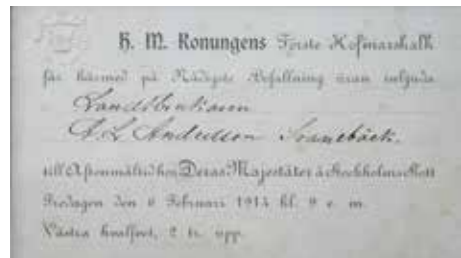 H. M. Konungens Förste Hofmarskalk
får härmed på Nådigste Befallning äran inbjuda
Landtbrukaren
Andersson
till Aftonmåltid hos Deras Majestäter å Stockholms Slott
Fredagen den 6 Februari 1914 kl. 9 e. m.
Västra hvalfvet, 2 tr. upp.